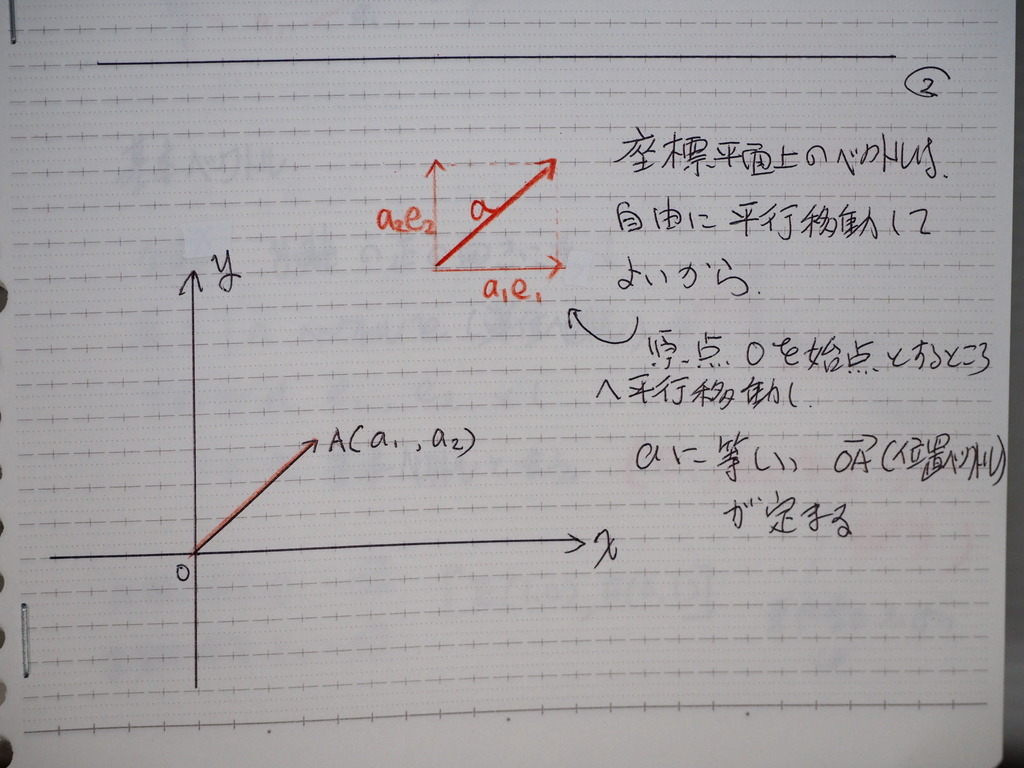 ②
座標平面上のベクトルは、
自由に平行移動して
よいから、
原点Oを始点とするところ
へ平行移動し、
aに等しい、OA→(位置ベクトル)
が定まる
a₂e₂
a
a₁e₁
y
A(a₁, a₂)
O
x